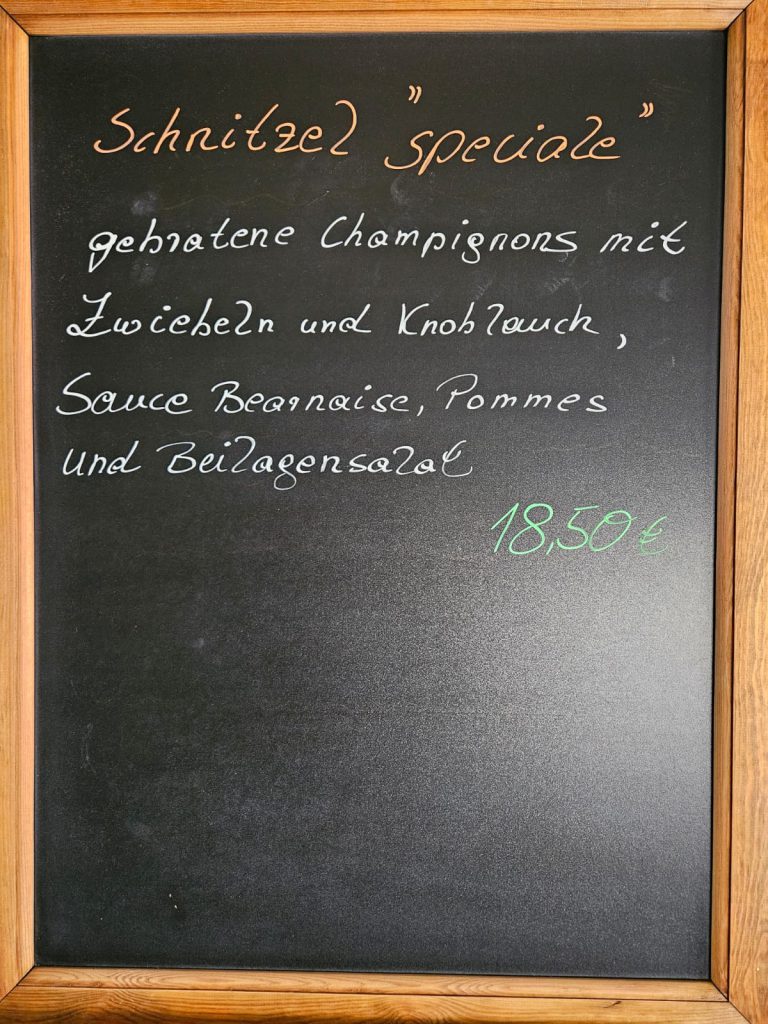 Schnitzel "speciale"
gebratene Champignons mit
Zwiebeln und Knoblauch,
Sauce Bearnaise, Pommes
und Beilagensalat
18,50 €